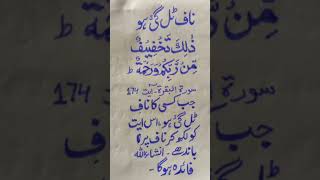 ناف ٹل گئی ہو
ذٰلِكَ تَخْفِيْفٌ
مِّنْ رَّبِّكُمْ وَرَحْمَةٌ ط
سورۃ البقرۃ آیت 174
جب کسی کا ناف
ٹل گئی ہو، اس ایت
کو لکھ کر ناف پر
باندھے۔ انشاءاللہ
فائدہ ہوگا۔